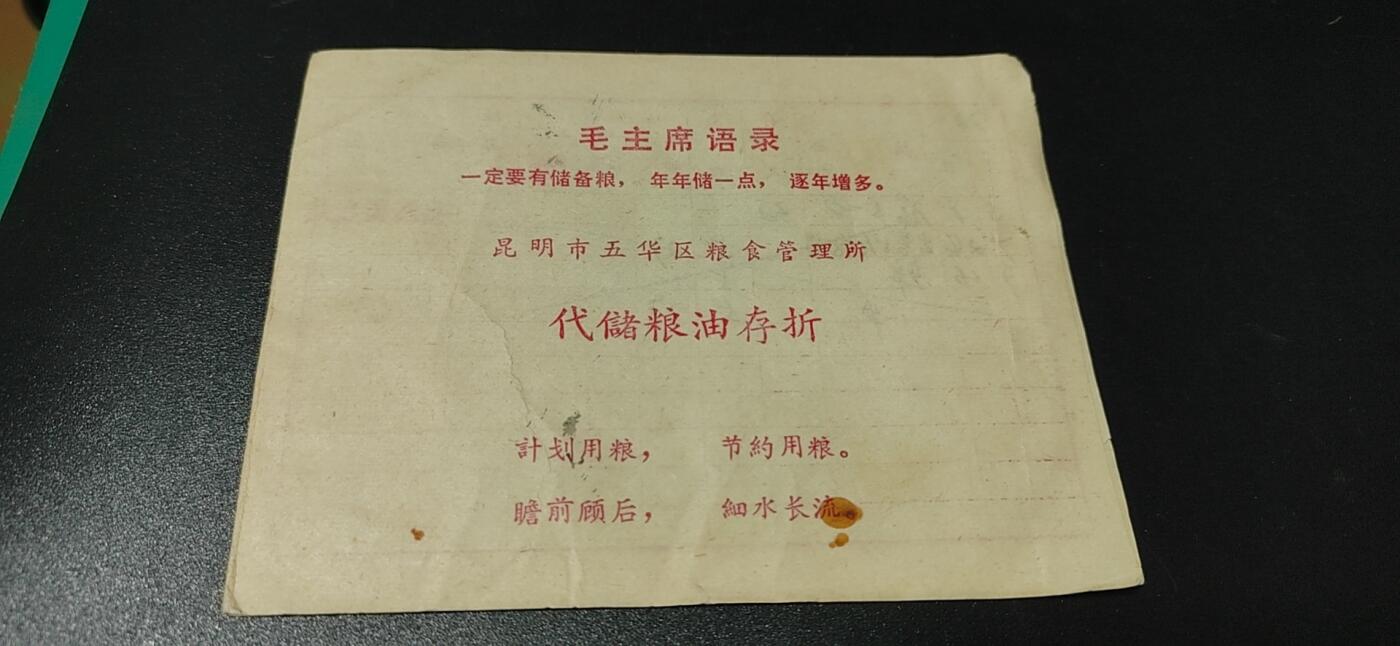 毛主席语录
一定要有储备粮， 年年储一点， 逐年增多。
昆明市五华区粮食管理所
代儲粮油存折
計划用粮， 节約用粮。
瞻前顾后， 細水长流。